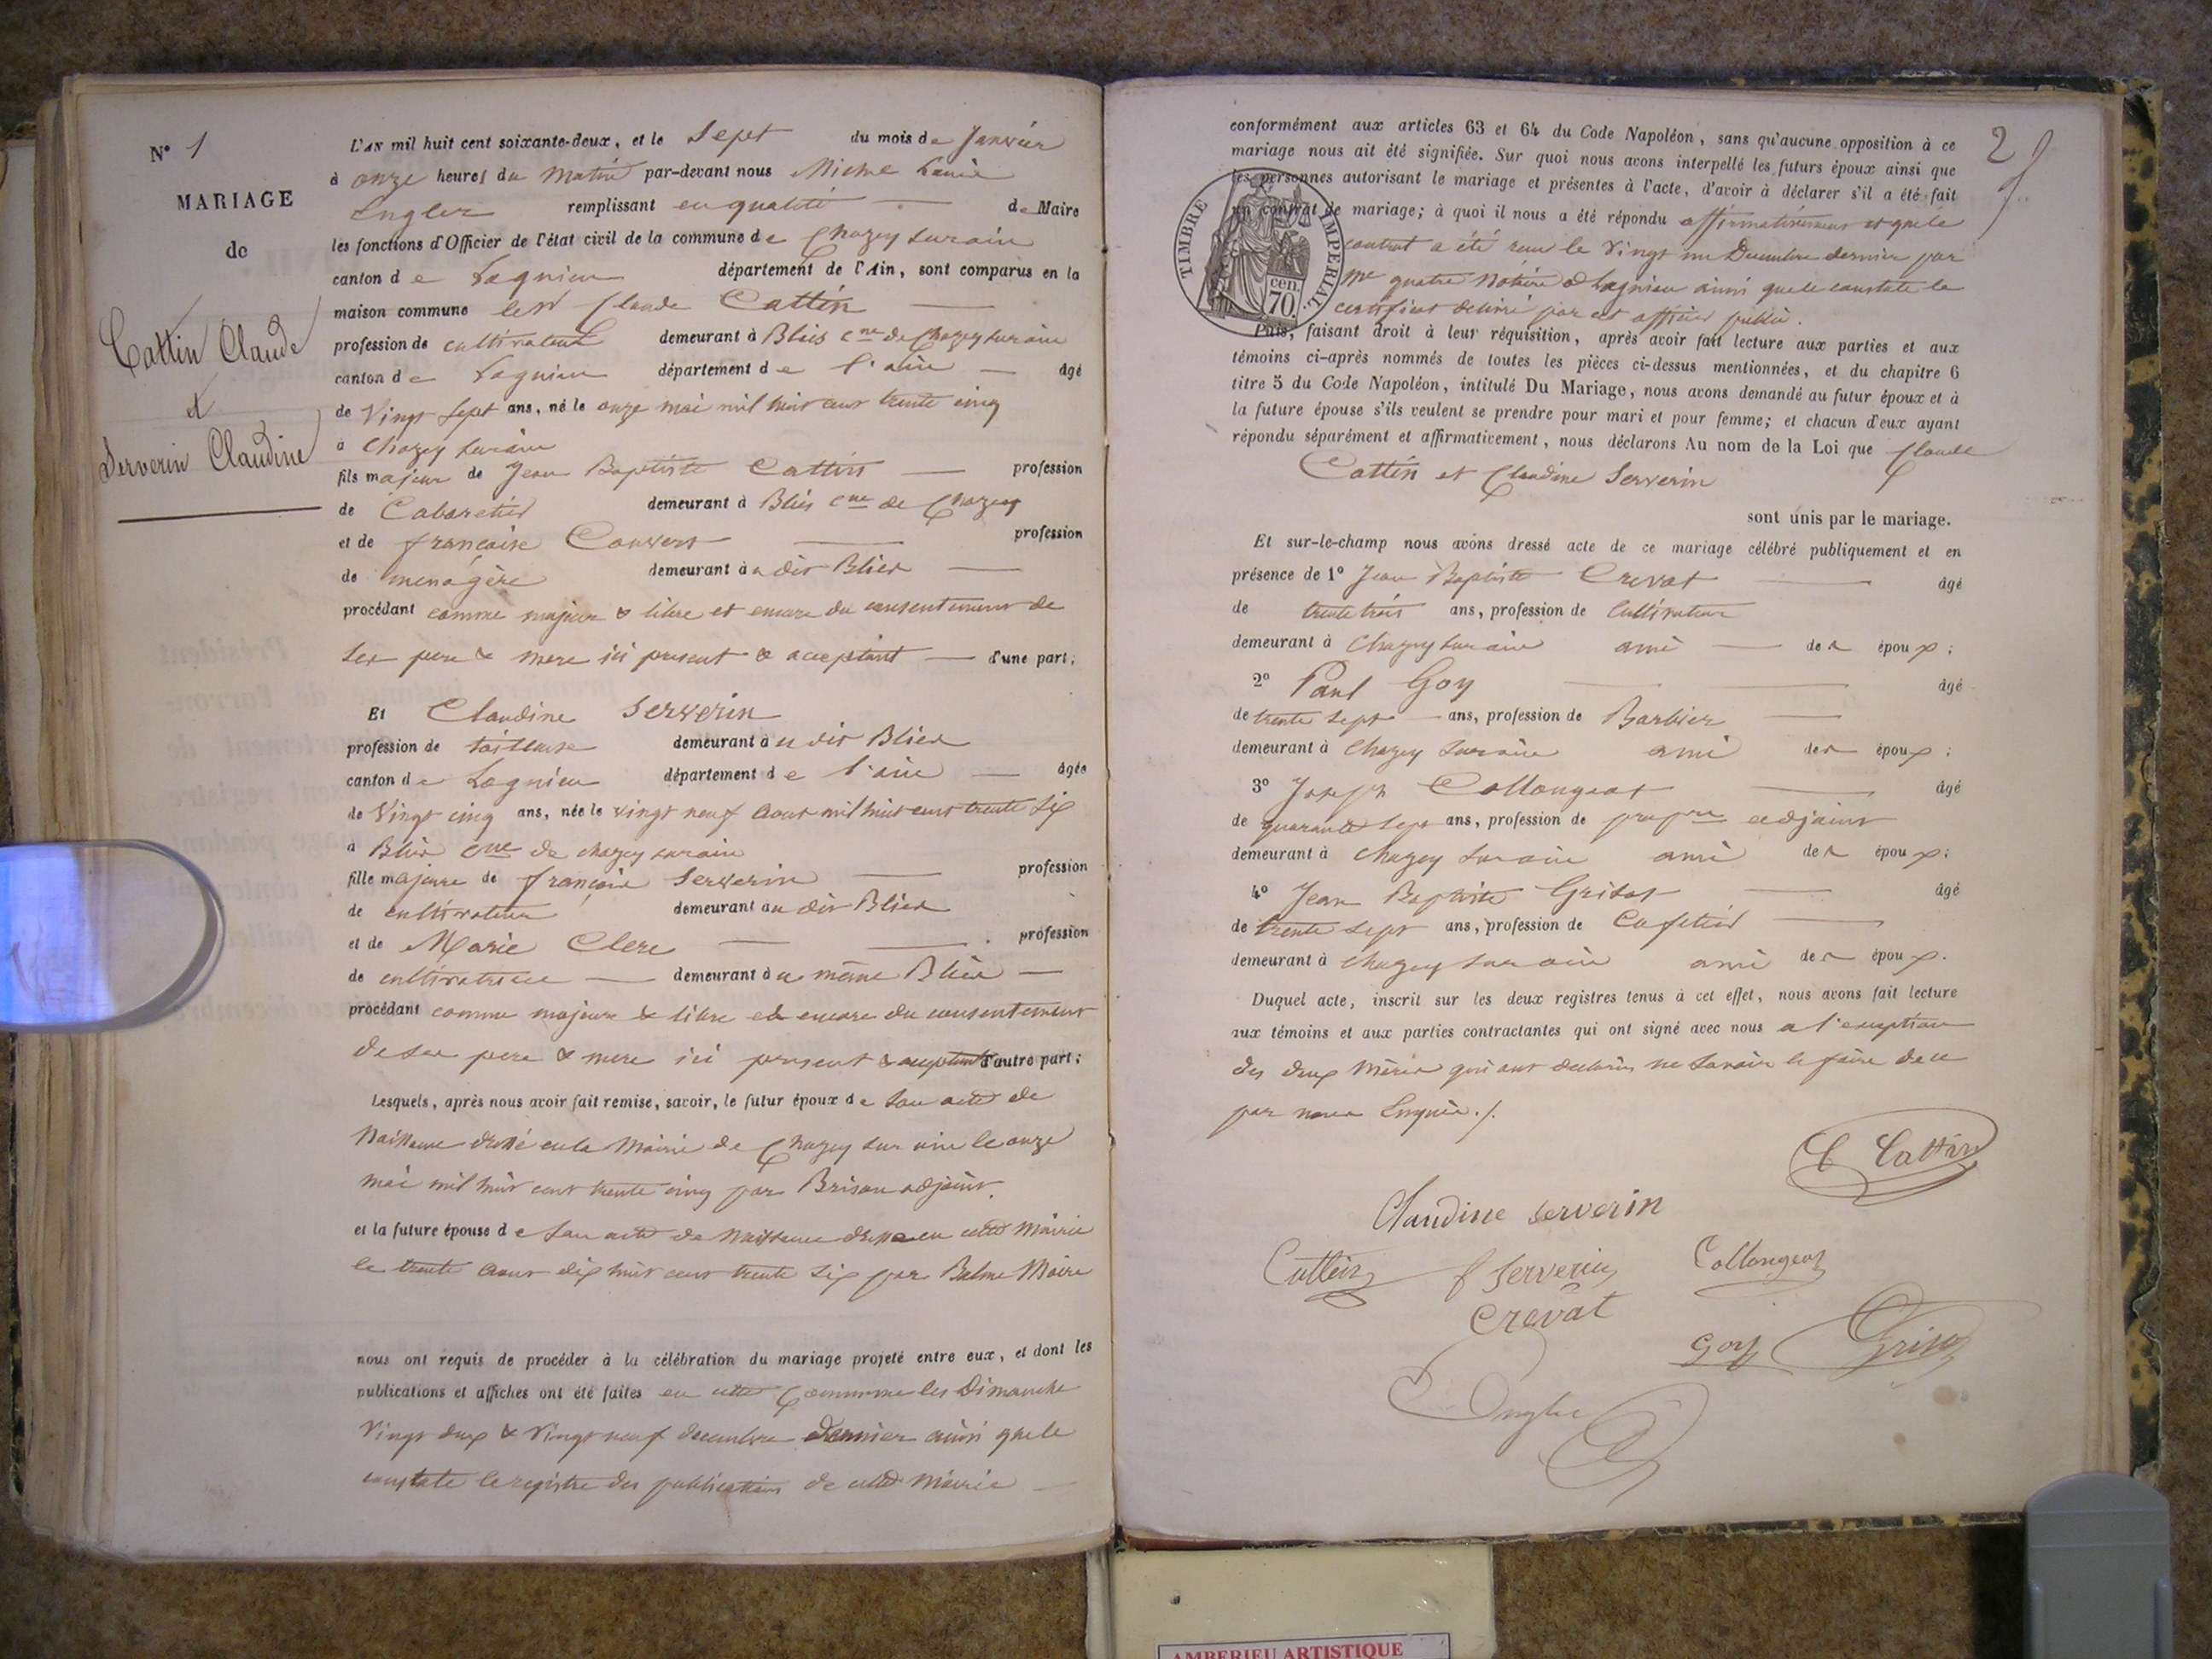 N° 1
MARIAGE
de
Cattin Claude
et
Serverin Claudine
L'AN mil huit cent soixante-deux, et le Sept du mois de Janvier
à onze heures du Matin par-devant nous Michel Louis
Engler remplissant en qualité de Maire
les fonctions d'Officier de l'état civil de la commune de Chazey sur ain
canton de Lagnieu département de l'Ain, sont comparus en la
maison commune le Sr Claude Cattin
profession de cultivateur demeurant à Blies cne de Chazey sur ain
canton de Lagnieu département de l'ain âgé
de Vingt Sept ans, né le onze mai mil huit cent trente cinq
à Chazey sur ain
fils majeur de Jean Baptiste Cattin profession
de Cabaretier demeurant à Blies cne de Chazey
et de françoise Convers profession
de menagère demeurant au dit Blies
procédant comme majeur & libre et encore du consentement de
ses pere & mere ici present & acceptant d'une part;
Et Claudine Serverin
profession de tailleuse demeurant au dit Blies
canton de Lagnieu département de l'ain âgée
de Vingt cinq ans, née le vingt neuf aout mil huit cent trente six
à Blies cne de chazey sur ain
fille majeure de françois Serverin profession
de cultivateur demeurant au dit Blies
et de Marie Clerc profession
de cultivatrice demeurant au même Blies
procédant comme majeure & libre et encore du consentement
de ses pere & mere ici present & acceptant d'autre part;
Lesquels, après nous avoir fait remise, savoir, le futur époux de son acte de
Naissance dressé en la Mairie de Chazey sur ain le onze
mai mil huit cent trente cinq par Brison adjoint.
et la future épouse de son acte de Naissance dressé en cette Mairie
le trente aout dix huit cent trente six par Balme Maire
nous ont requis de procéder à la célébration du mariage projeté entre eux, et dont les
publications et affiches ont été faites en cette Commune les Dimanche
Vingt deux & Vingt neuf decembre dernier ainsi que le
constate le registre des publications de cette Mairie
2
conformément aux articles 63 et 64 du Code Napoléon, sans qu'aucune opposition à ce
mariage nous ait été signifiée. Sur quoi nous avons interpellé les futurs époux ainsi que
les personnes autorisant le mariage et présentes à l'acte, d'avoir à déclarer s'il a été fait
un contrat de mariage; à quoi il nous a été répondu affirmativement et que le
contrat a été recu le Vingt un Decembre dernier par
Me quatre Notaire a Lagnieu ainsi que le constate le
certificat delivré par cet officier public.
TIMBRE IMPERIAL.
cen.
70.
Puis, faisant droit à leur réquisition, après avoir fait lecture aux parties et aux
témoins ci-après nommés de toutes les pièces ci-dessus mentionnées, et du chapitre 6
titre 5 du Code Napoléon, intitulé Du Mariage, nous avons demandé au futur époux et à
la future épouse s'ils veulent se prendre pour mari et pour femme; et chacun d'eux ayant
répondu séparément et affirmativement, nous déclarons Au nom de la Loi que Claude
Cattin et Claudine Serverin
sont unis par le mariage.
Et sur-le-champ nous avons dressé acte de ce mariage célébré publiquement et en
présence de 1° Jean Baptiste Crevat âgé
de trente trois ans, profession de Cultivateur
demeurant à Chazey sur ain ami des époux;
2° Paul Goy âgé
de trente sept ans, profession de Barbier
demeurant à Chazey sur ain ami des époux;
3° Joseph Collongeat âgé
de quarante sept ans, profession de propre adjoint
demeurant à chazey sur ain ami des époux;
4° Jean Baptiste Grisot âgé
de trente sept ans, profession de Cafetier
demeurant à Chazey sur ain ami des époux.
Duquel acte, inscrit sur les deux registres tenus à cet effet, nous avons fait lecture
aux témoins et aux parties contractantes qui ont signé avec nous a l'exception
des deux Mères qui ont declarés ne savoir le faire de ce
par nous Enquis./.
C Cattin
Claudine serverin
Cattin f Serverin Collongeat
Crevat
Goy Grisot
Engler
AMBERIEU ARTISTIQUE